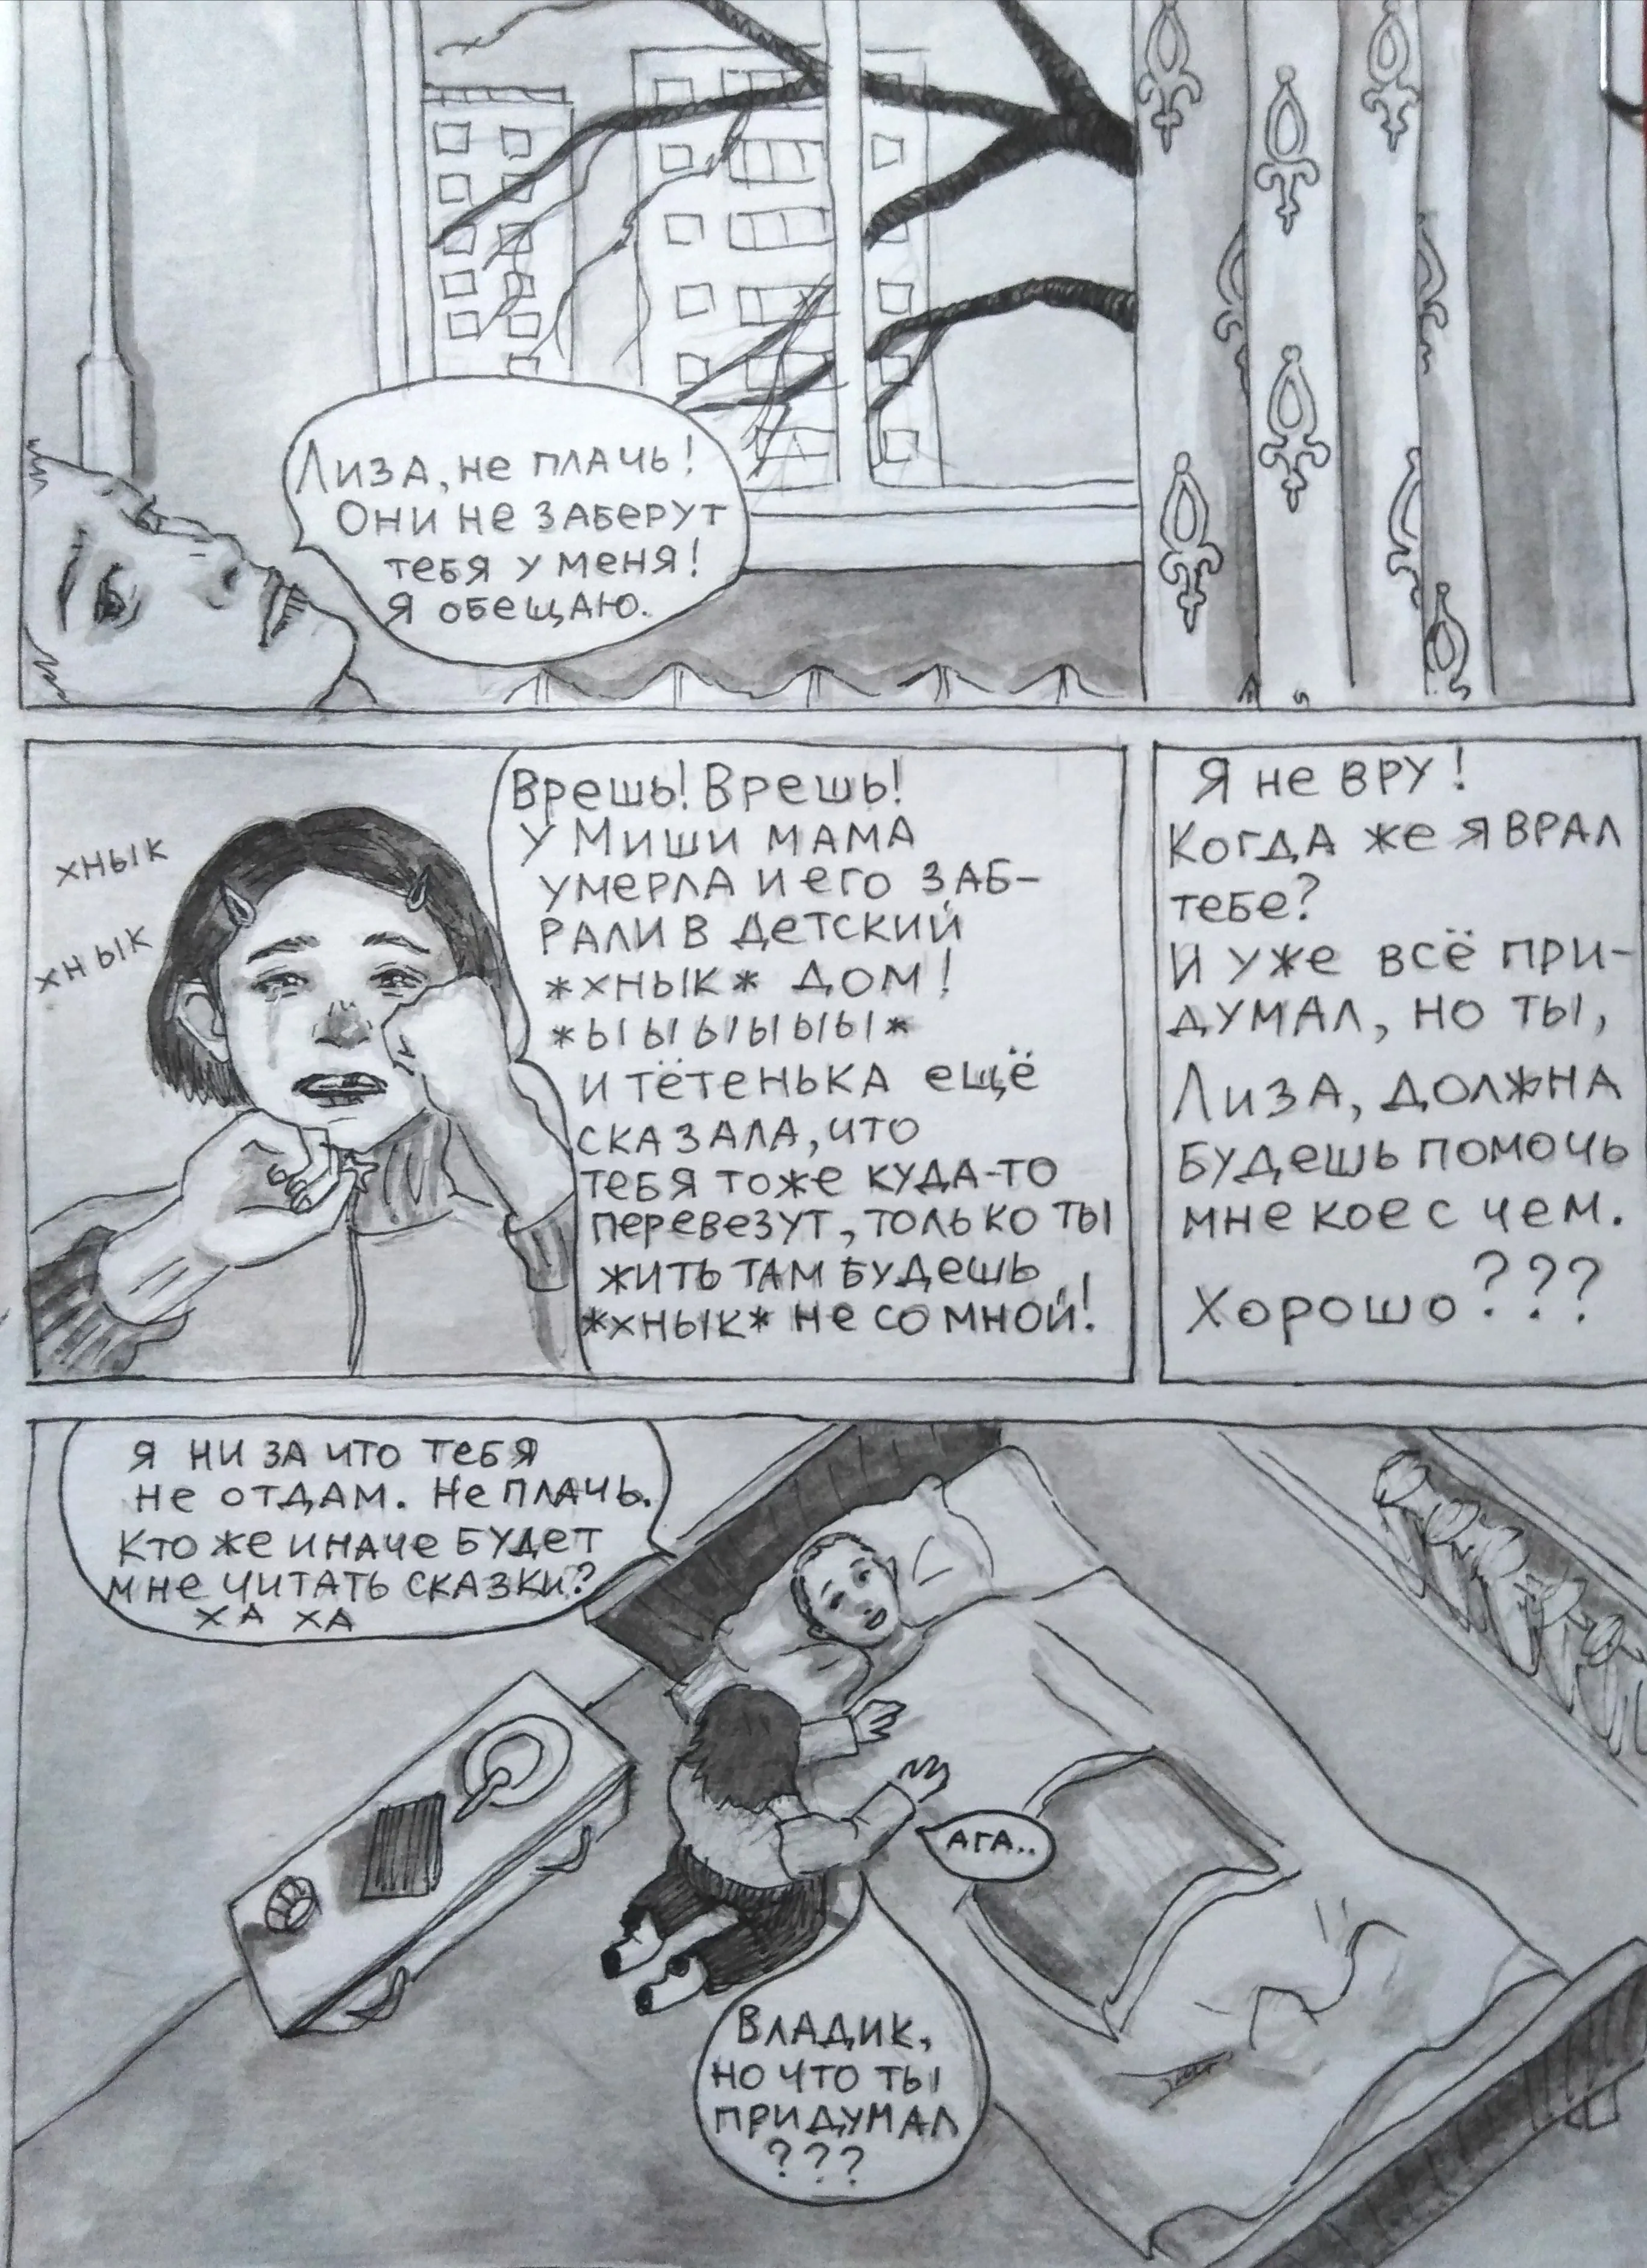 Лиза, не плачь!
Они не заберут
тебя у меня!
Я обещаю.
хнык
хнык
Врешь! Врешь!
У Миши мама
умерла и его заб-
рали в детский
*хнык* дом!
*ыыыыыы*
и тётенька ещё
сказала, что
тебя тоже куда-то
перевезут, только ты
жить там будешь
*хнык* не со мной!
Я не вру!
Когда же я врал
тебе?
И уже всё при-
думал, но ты,
Лиза, должна
будешь помочь
мне кое с чем.
Хорошо???
Я ни за что тебя
не отдам. Не плачь.
Кто же иначе будет
мне читать сказки?
ха ха
ага..
Владик,
но что ты
придумал
???